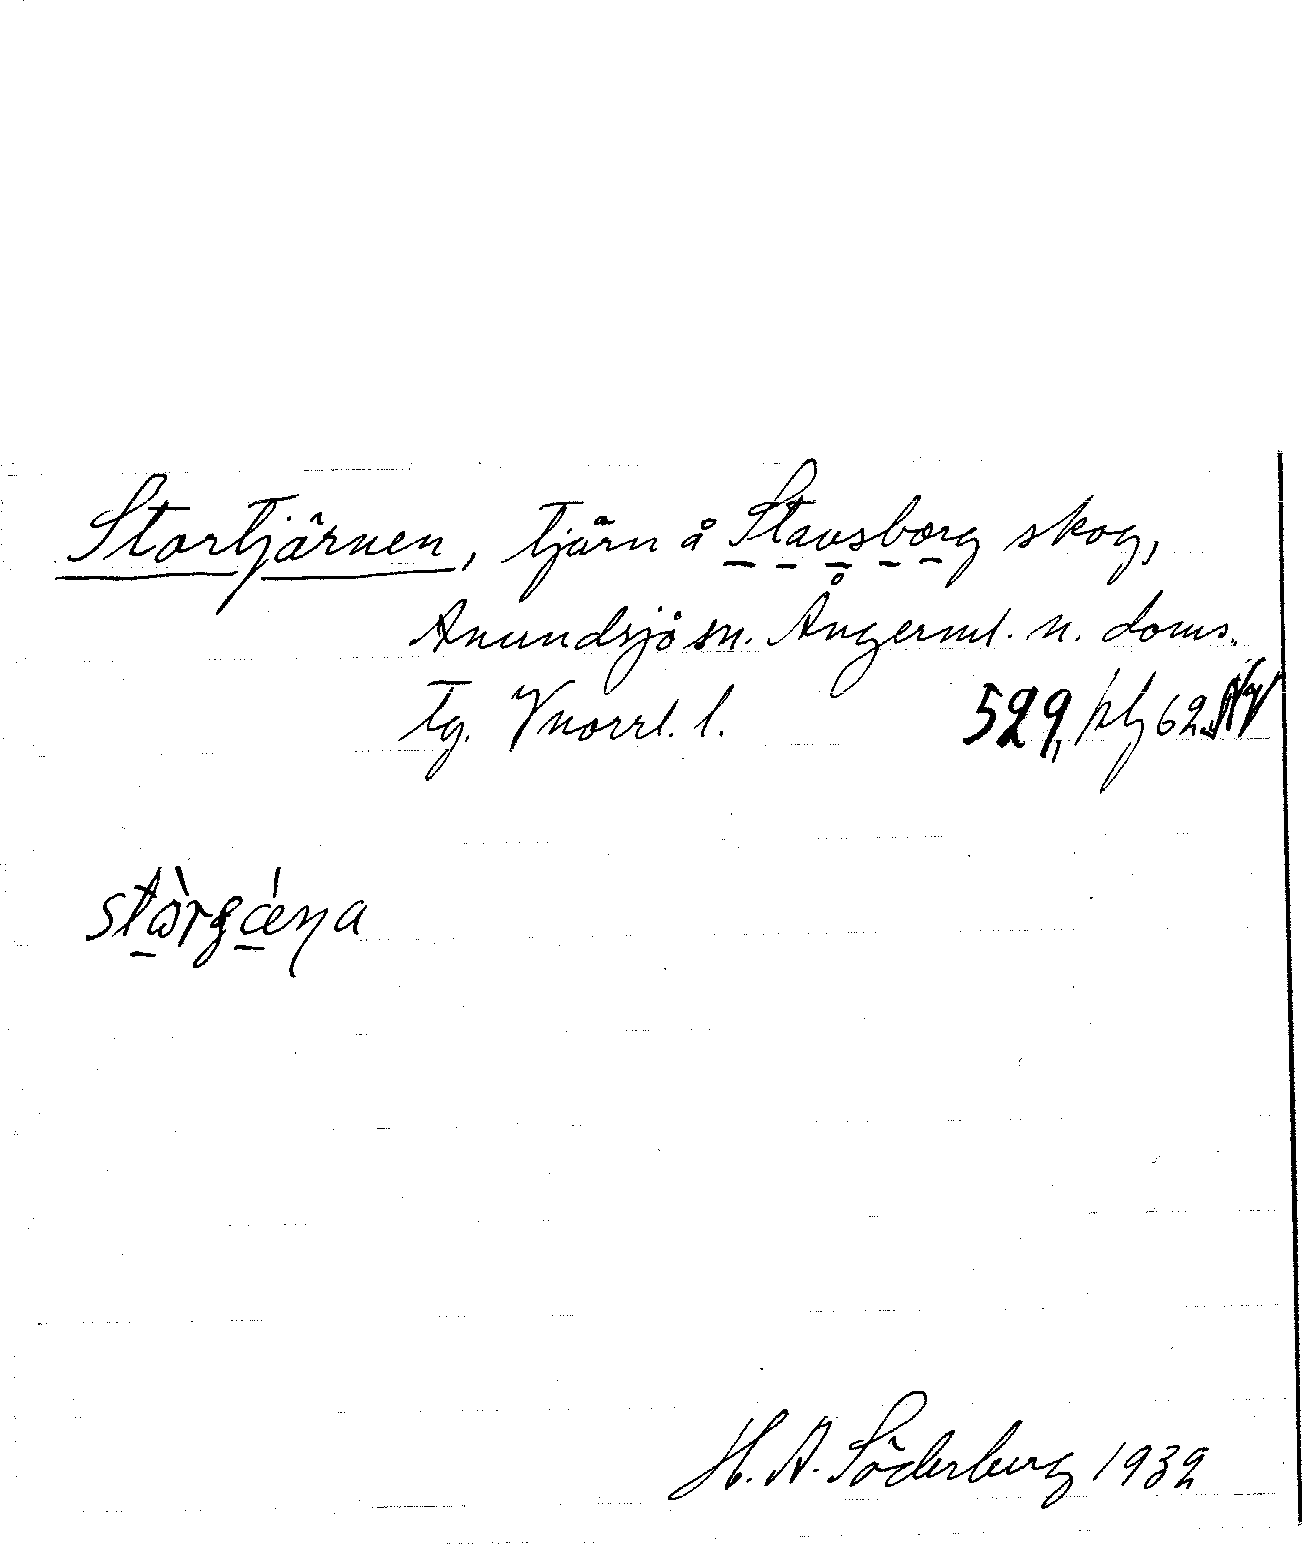 Stortjärnen, tjärn å Stavsborg skog,
Anundsjö sn. Ångerml. n. doms.
tg. Vnorrl. l. 529, 62
H. A. Söderberg 1932